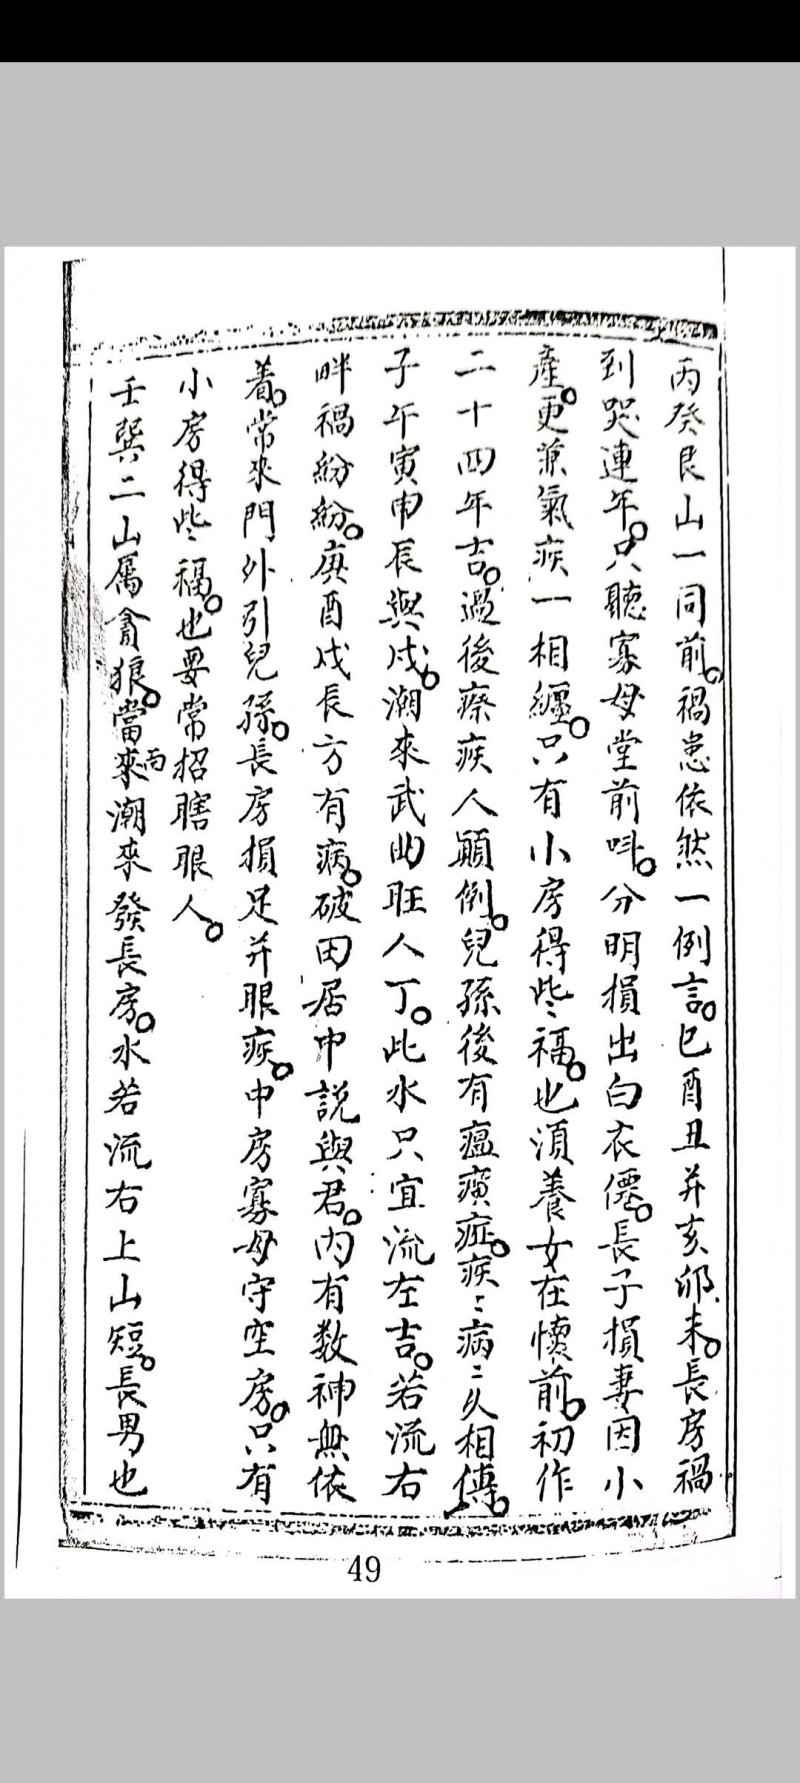 丙癸艮山一同前。禍患依然一例言。巳酉丑并亥卯未。長房禍
到哭連年。只聽寡母堂前呌。分明損出白衣僊。長子損妻因小
產。更兼氣疾一相纏。只有小房得些福。也須養女在懷前。初作
二十四年吉。過後療疾人顚倒。兒孫後有瘟癀症。疾〻病〻久相傳。
子午寅申辰與戌。潮來武曲旺人丁。此水只宜流左吉。若流右
畔禍紛紛。庚酉戌長方有病。破田居中説與君。內有数神無依
着。常來門外引兒孫。長房損足并眼疾。中房寡母守空房。只有
小房得些福。也要常招瞎眼人。
壬巽二山屬貪狼。當來丙潮來發長房。水若流右上山短。長男也
49